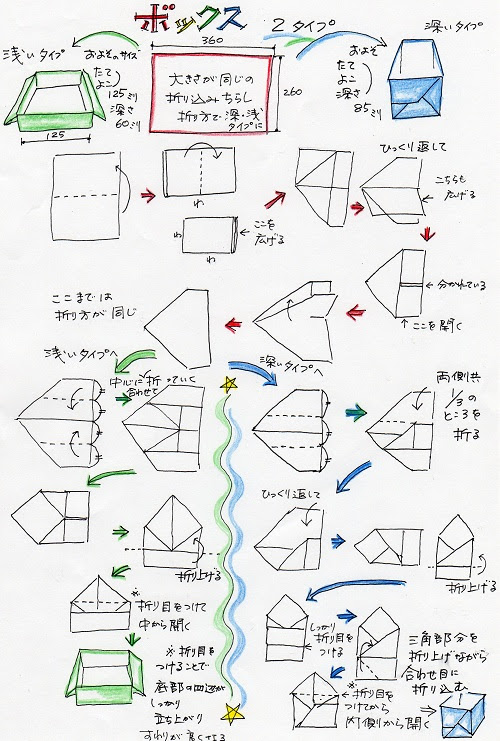 ボックス 2タイプ
浅いタイプ
およそのサイズ
たて
よこ
125ミリ
深さ
60ミリ
125
360
260
大きさが同じの
折り込みちらし
折り方で深・浅
タイプに
深いタイプ
およそ
たて
よこ
深さ
85ミリ
わ
わ
わ
ここを
広げる
ひっくり返して
こちらも
広げる
分かれている
ここを開く
ここまでは
折り方が同じ
浅いタイプへ
中心に折っていく
合わせて
折り上げる
※
折り目をつけて
中から開く
※折り目を
つけることで
底部の四辺が
しっかり
立ち上がり
すわりが良くなる
深いタイプへ
両側共
1/3の
ところを
折る
ひっくり返して
折り上げる
しっかり
折り目を
つける
三角部分を
折り上げながら
合わせ目に
折り込む
※
折り目を
つけてから
内側から開く